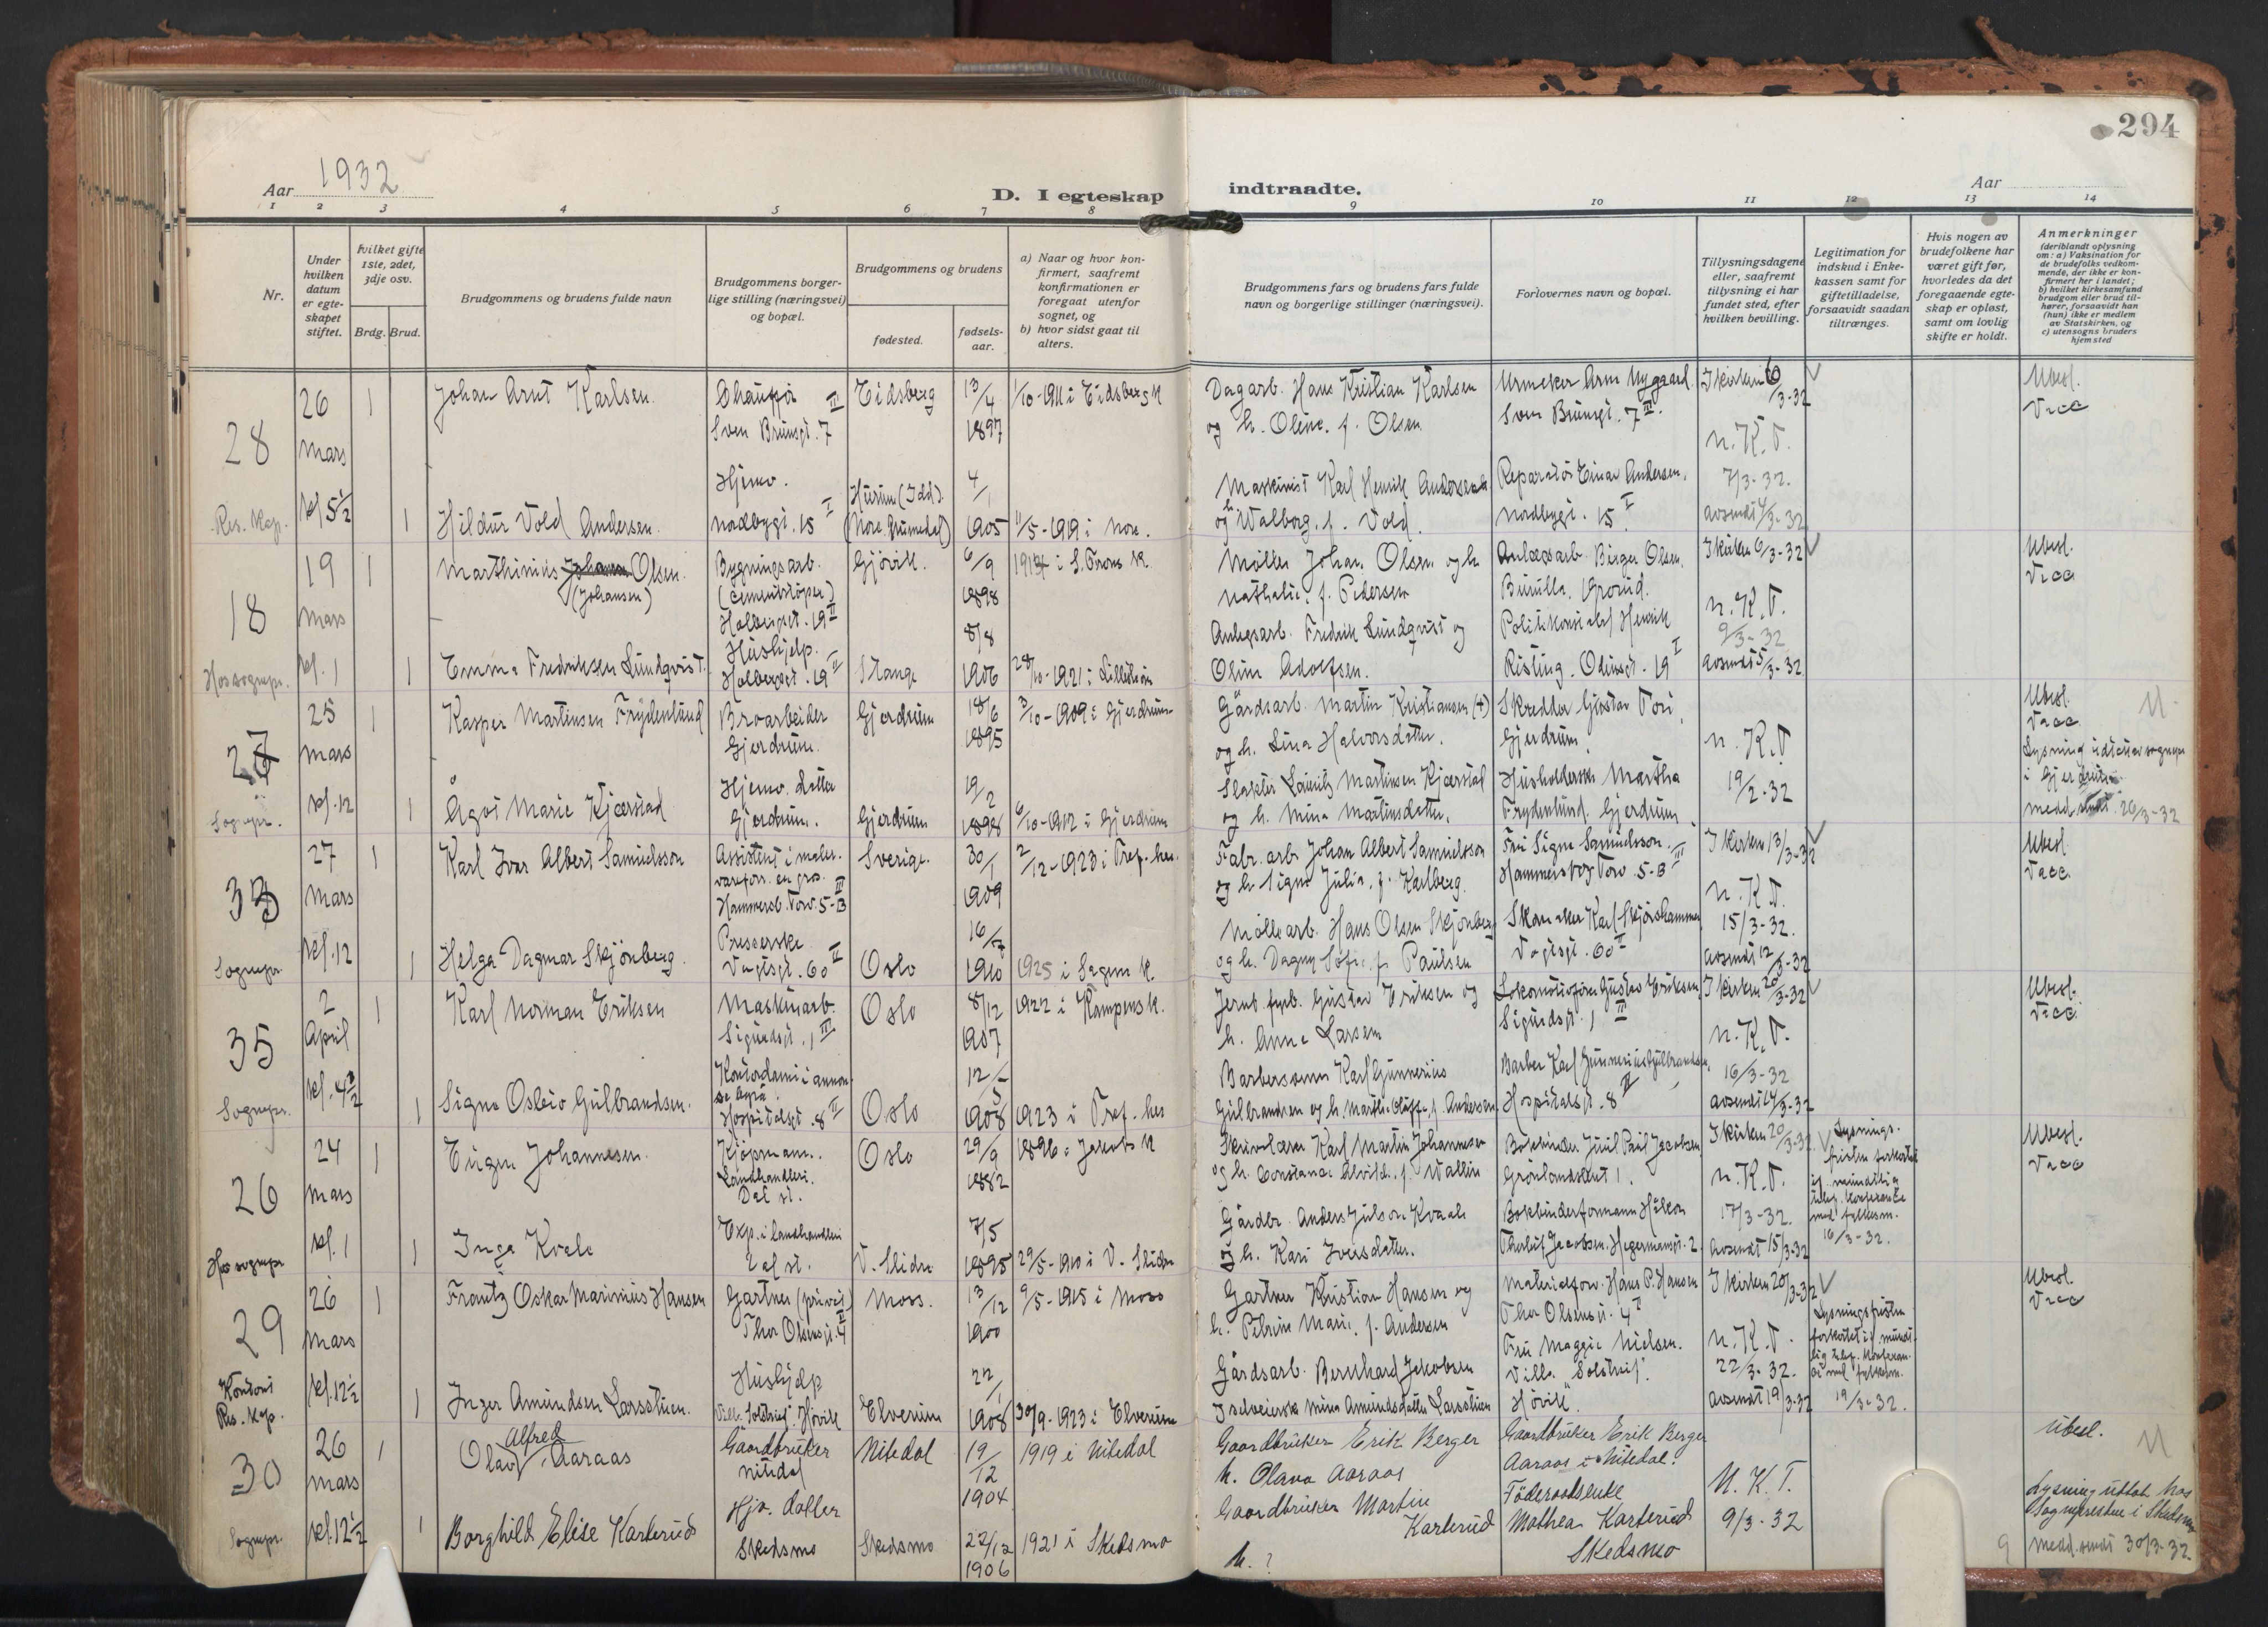 294
Aar 1932
D. I egteskap indtraadte.
Aar
1 2 3 4 5 6 7 8 9 10 11 12 13 14
Nr.
Under hvilken datum er egteskapet stiftet.
Hvilket gifte 1ste, 2det, 3dje osv.
Brdg. Brud.
Brudgommens og brudens fulde navn
Brudgommens borgerlige stilling (næringsvei) og bopæl.
Brudgommens og brudens
fødested.
fødselsaar.
a) Naar og hvor konfirmert, saafremt konfirmationen er foregaat utenfor sognet, og
b) hvor sidst gaat til alters.
Brudgommens fars og brudens fars fulde navn og borgerlige stillinger (næringsvei).
Forlovernes navn og bopæl.
Tillysningsdagene eller, saafremt tillysning ei har fundet sted, efter hvilken bevilling.
Legitimation for indskud i Enkekassen samt for giftetilladelse, forsaavidt saadan tiltrænges.
Hvis nogen av brudefolkene har været gift før, hvorledes da det foregaaende egteskap er opløst, samt om lovlig skifte er holdt.
Anmerkninger (deriblandt oplysning om: a) Vaksination for de brudefolks vedkommende, der ikke er konfirmert her i landet; b) hvilket kirkesamfund brudgom eller brud tilhører, forsaavidt han (hun) ikke er medlem av Statskirken, og c) utensogns bruders hjemsted
28
26 Mars kl 5½
Res. Kap.
1 Johan Arnt Karlsen.
Chauffør
Sven Brunsgt. 7 III
Eidsberg
13/4 1897
1/10-1911 i Eidsberg K
Dagarb. Hans Kristian Karlsen
og h. Oline f. Olsen.
Urmaker Arne Nygaard.
Sven Brunsgt. 7 III.
I kirken 6/3-32
n. K. T.
7/3-32.
avsendt 4/3-32
Ubesl.
Vacc
1 Hildur Vold Andersen.
Hjemv.
Nordbygt. 15 I
Hurum (Idd).
(Nore Numedal)
4/1 1905
11/5-1919 i Nore.
Maskinist Karl Henrik Andersen
og h. Walborg f. Vold.
Reparatør Einar Andersen.
Nordbygt. 15 I
18
19 Mars kl. 1
Hos sognepr.
1 Marthinius Johannes Olsen.
(Johansen)
Bygningsarb.
(cementstøper)
Holbergsgt. 19 II
Gjövik.
6/9 1898
1913 i S. Frons K.
Møller Johan Olsen og h.
Nathalie, f. Pedersen
Anlegsarb. Birger Olsen.
Grorud.
I kirken 6/3-32
n. K. T.
9/3-32
avsendt 5/3-32
Ubesl.
Vacc
1 Emma Fredriksen Lundqvist.
Hushjelp.
Holbergsgt. 19 II
Stange
8/8 1906
28/10-1921 i Lilleström
Anlegsarb. Fredrik Lundqvist og
Oline Adolfsen.
Politikonstabel Henrik
Risting. Odinsgt. 19 I
27
25 Mars kl. 12
Sognepr.
1 Kasper Martinsen Frydenlund
Broarbeider
Gjerdrum.
Gjerdrum
18/6 1895
3/10-1909 i Gjerdrum
Gårdsarb. Martin Kristiansen (+)
og h. Lina Halvorsdatter.
Skredder Gustav Tori,
Gjerdrum.
n. K. T
19/2-32
Ubesl.
Vacc.
Lysning utstedt av sognepr
i Gjerdrum
medd. sendt. 26/3-32
1 Ågot Marie Kjærstad
Hjemv. datter
Gjerdrum.
Gjerdrum
19/2 1898
6/10-1912 i Gjerdrum
Slakter Lauritz Martinsen Kjærstad
og h. Mina Martinsdatter.
Husholderske Martha
Frydenlund. Gjerdrum
33
27 Mars kl. 12
Sognepr
1 Karl Ivar Albert Samuelsson
Assistent i maler-
vareforr. en gros.
Hammersb. Torv. 5-B III
Sverige.
30/1 1909
2/12-1923 i Tref. kes.
Fabr. arb. Johan Albert Samuelsson
og h. Signe Julia, f. Karlberg.
Fru Signe Samuelsson.
Hammersborg Torv 5-B III
I kirken 13/3-32
n. K. T.
15/3-32.
avsendt 12/3-32
Ubesl.
Vacc.
1 Helga Dagmar Skjönberg.
Presserske
Vogtsgt. 60 II
Oslo
1910
1925 i Sagene K.
Møllearb. Hans Olsen Skjönberg
og h. Dagny Sofie, f. Paulsen
Skomaker Karl Skjörshammer
Vogtsgt. 60 II
35
2 April
Sognepr.
1 Karl Norman Eriksen
Maskinarb.
Sigurdsgt. 1 III
Oslo
8/12 1907
1922 i Kampens K.
Gustav Eriksen og
h. Anne Larsen
Lokomotivfører Gustav Eriksen
Sigurdsgt. 1 III
I kirken 20/3-32
n. K. T.
16/3-32
avsendt 14/3-32
Ubesl.
Vacc.
1 Signe Oslvio Gulbrandsen.
Kontordame i annon-
se byrå.
Hospitalsgt. 8 II
Oslo
12/5 1908
1923 i Tref. kes
Barbersvenn Karl Gunnerius
Gulbrandsen og h. Marthe Oluffe, f. Andersen
Barber Karl Gunnerius Gulbrandsen.
Hospitalsgt. 8 II
26
24 Mars kl. 1
Hos sognepr
1 Eugen Johannesen.
Kjøpmann.
Landhandleri.
Dal st.
Oslo
29/9 1882
1896 i Jakobs K
Skrivelærer Karl Martin Johannesen
og h. Constance Alvilde f. Wallin
Bokbinder Juul Paul Jacobsen
Grönlandsleret 1.
I kirken 20/3-32
n. K. T.
17/3-32.
avsendt 15/3-32
Lysnings-
fristen forkortet
if. muntlig
telef. konferanse
med folkerm.
16/3-32.
Ubesl.
Vacc
1 Inga Kvale
Exp. i landhandleri
Dal st.
V. Slidre
7/5 1895
29/5-1910 i V. Slidre
Gårdbr. Anders Julson Kvale
og h. Kari Iversdatter.
Bokbinderformann Håkon
Thorleif Jacobsen. Hegermannsgt. 2.
29
26 Mars kl. 12½
Kontoret
Res. Kap.
1 Frantz Oskar Marinius Hansen
Gartner (privat)
Thor Olsensgt. 4 I
Moss.
13/12 1900
9/5-1915 i Moss
Gartner Kristian Hansen og
h. Petrine Marie, f. Andersen
Materialforv. Hans P. Hansen
Thor Olsensgt. 4 I
I kirken 20/3-32
n. K. T.
22/3-32.
avsendt 19/3-32
Lysningsfristen
forkortet if. munt-
lig telef. konferan-
se med folkerm.
19/3-32.
Ubesl.
Vacc
1 Inger Amundsen Larsstuen.
Hushjelp
Villa "Solstreif". Høvik
Elverum
22/1 1908
30/9-1923 i Elverum
Gårdsarb. Bernhard Jakobsen
Mina Amundsdatter Larsstuen
Fru Maggie Nielsen.
Villa "Solstreif".
Høvik
30
26 mars kl. 12½
Sognepr.
1 Olav Alfred Aaraas
Gaardbruker
Nitedal
Nitedal
19/12 1904
1919 i Nitedal
Gaardbruker Erik Berger
h. Olava Aaraas
Gaardbruker Erik Berger
Aaraas i Nitedal.
N. K. T.
9/3-32
Ubesl.
Lysning uttat hos
Sognepresten i Skedsmo
medd. sendt 30/3-32.
1 Borghild Elise Karterud
Hjv. datter
Skedsmo
Skedsmo
22/12 1906
1921 i Skedsmo
Gaardbruker Martin
Karterud
h. ?
Föderaadsenke
Mathea Karterud
Skedsmo